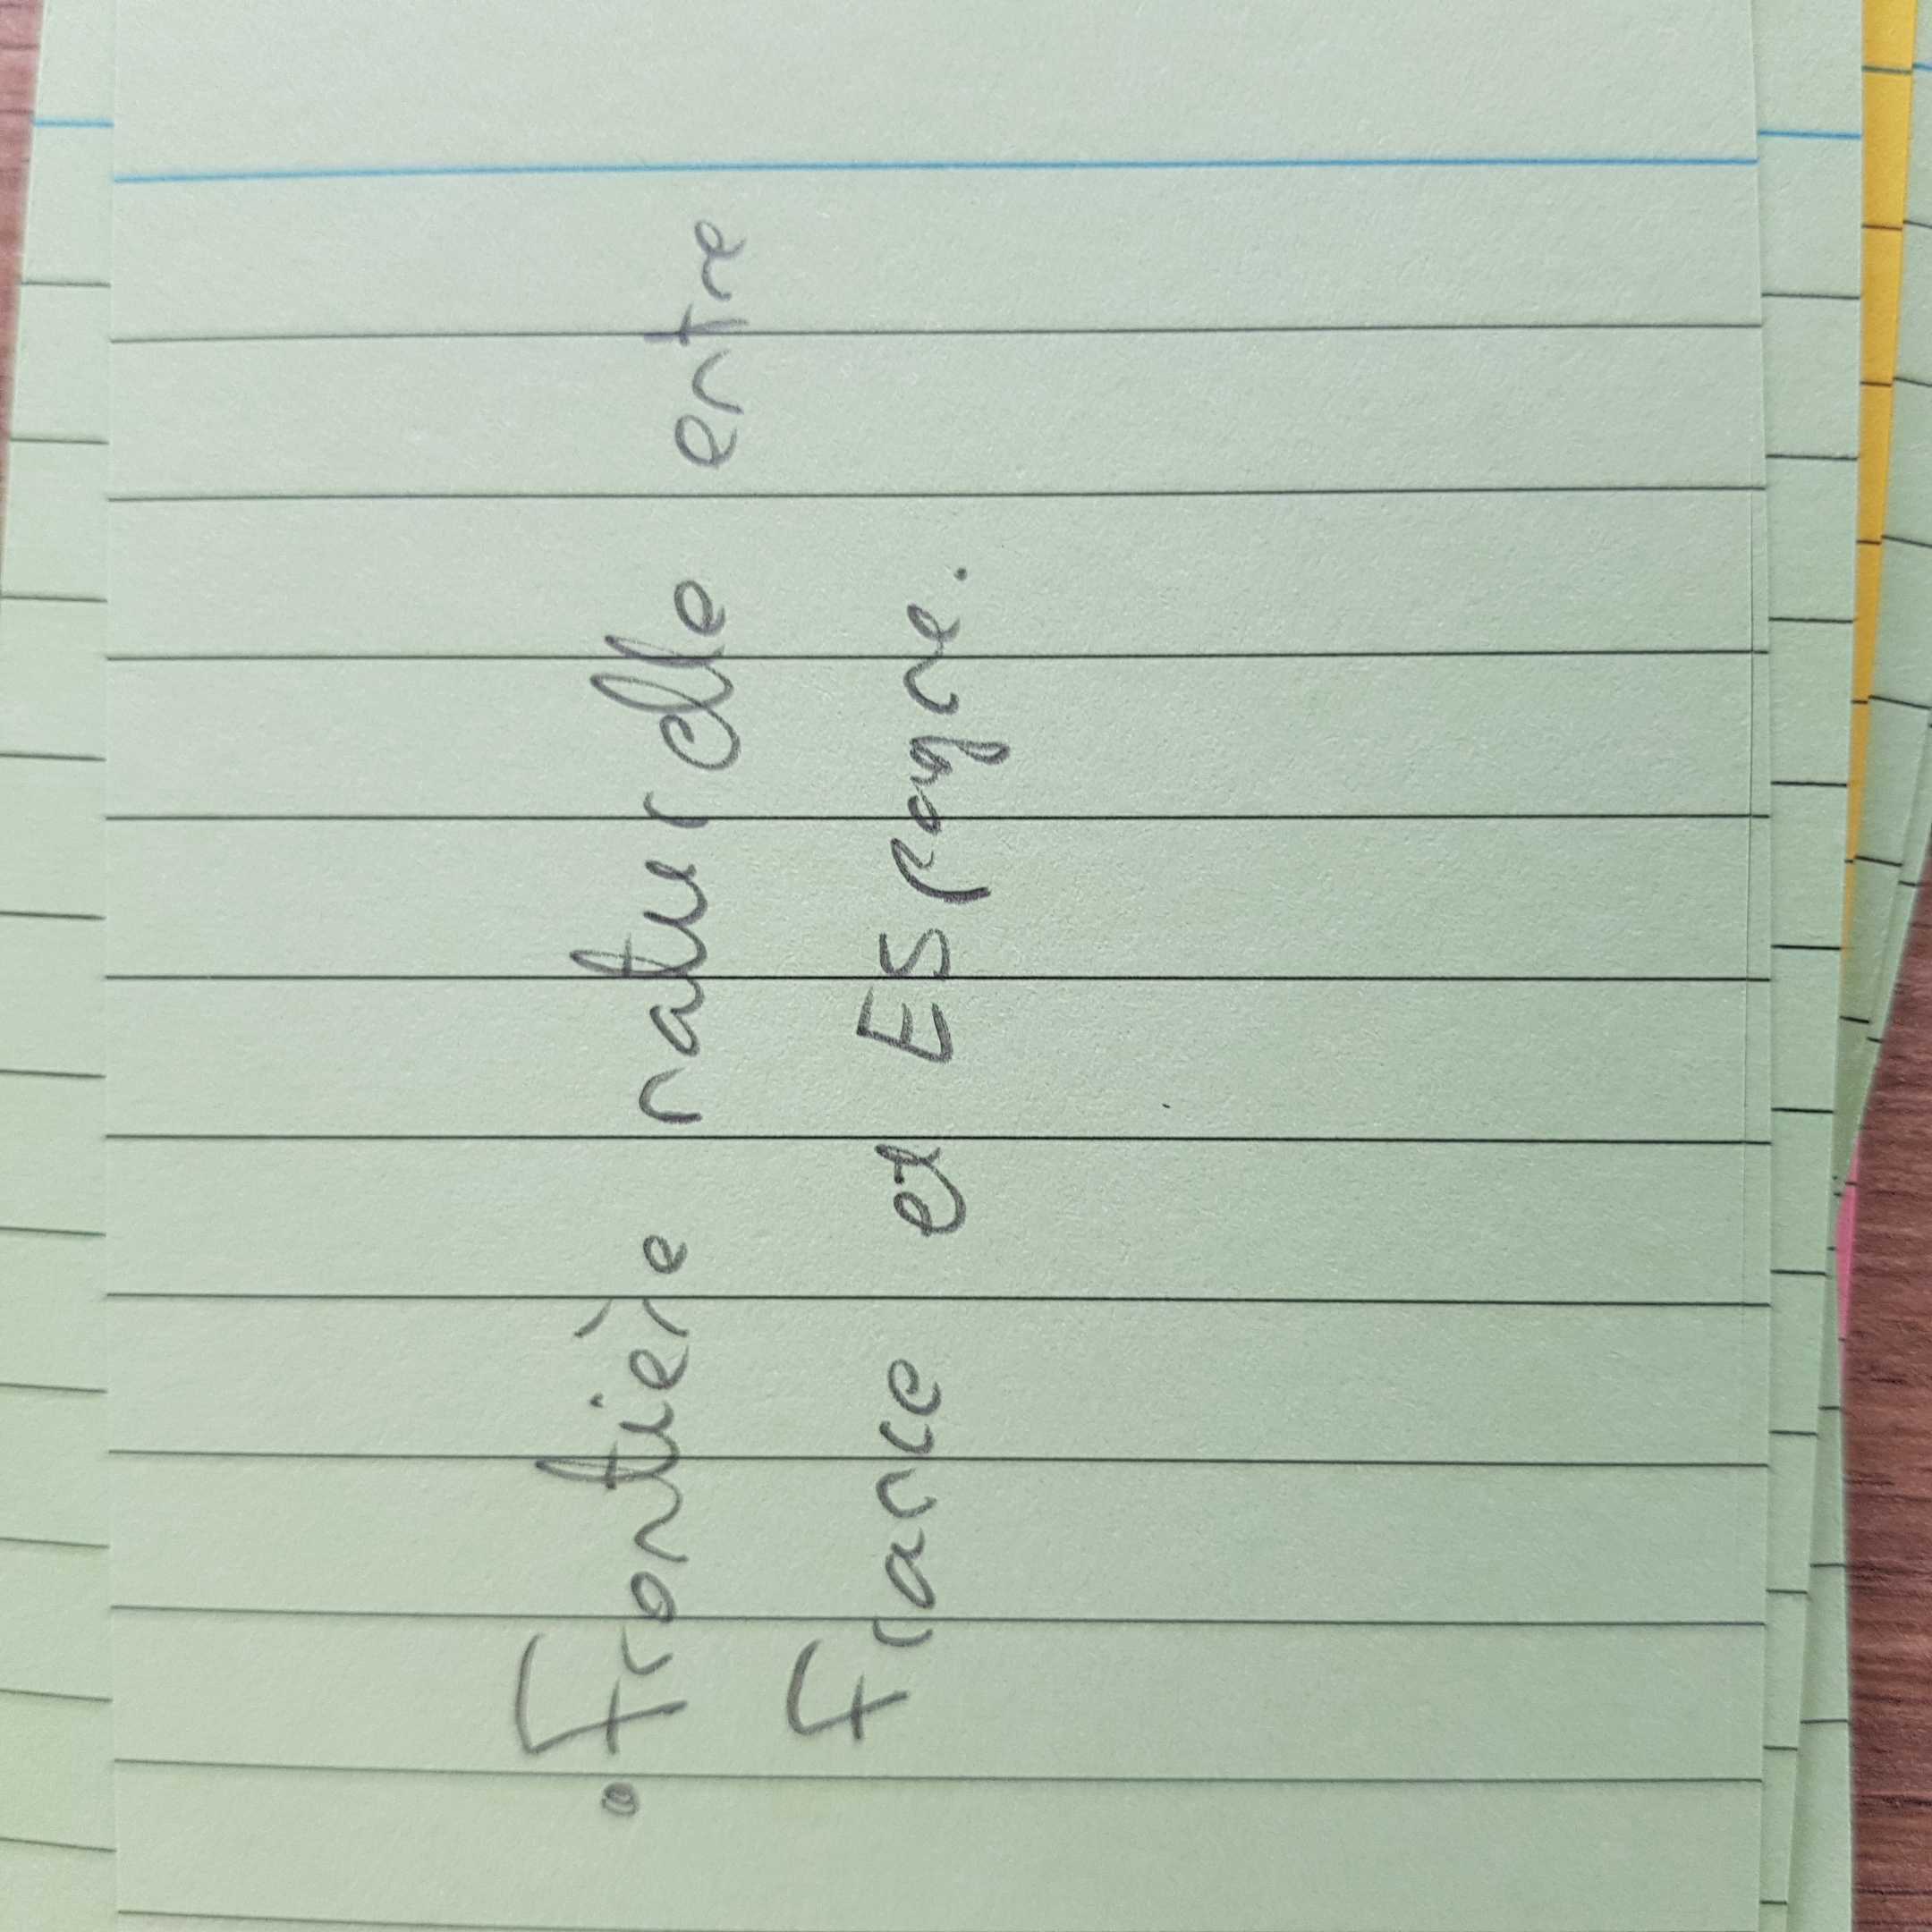 • Frontière naturelle entre
France et Espagne.